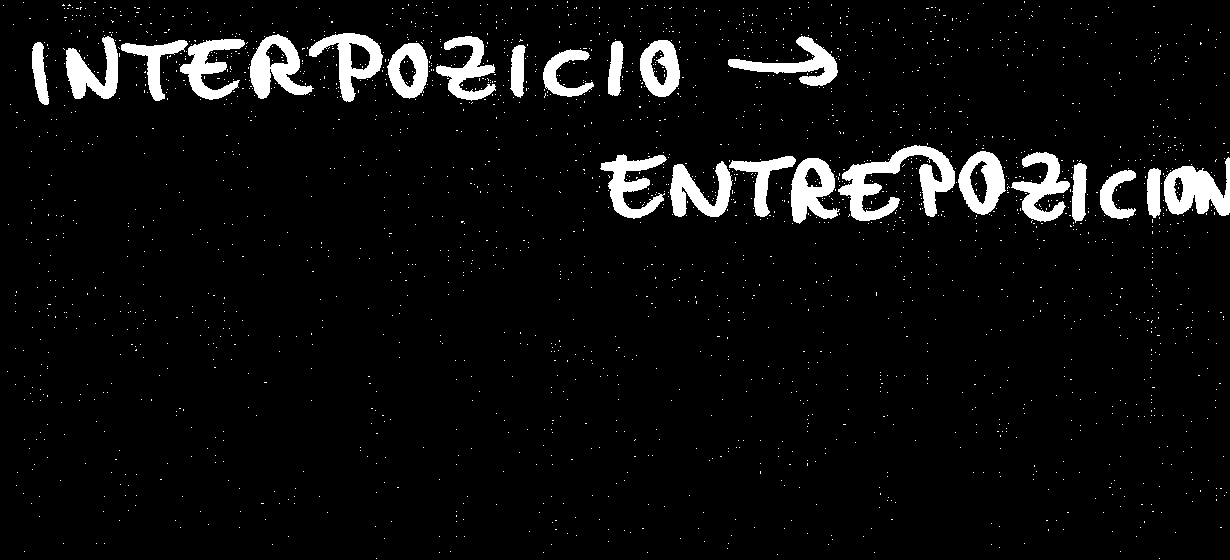 INTERPOZICIO →
ENTREPOZICION